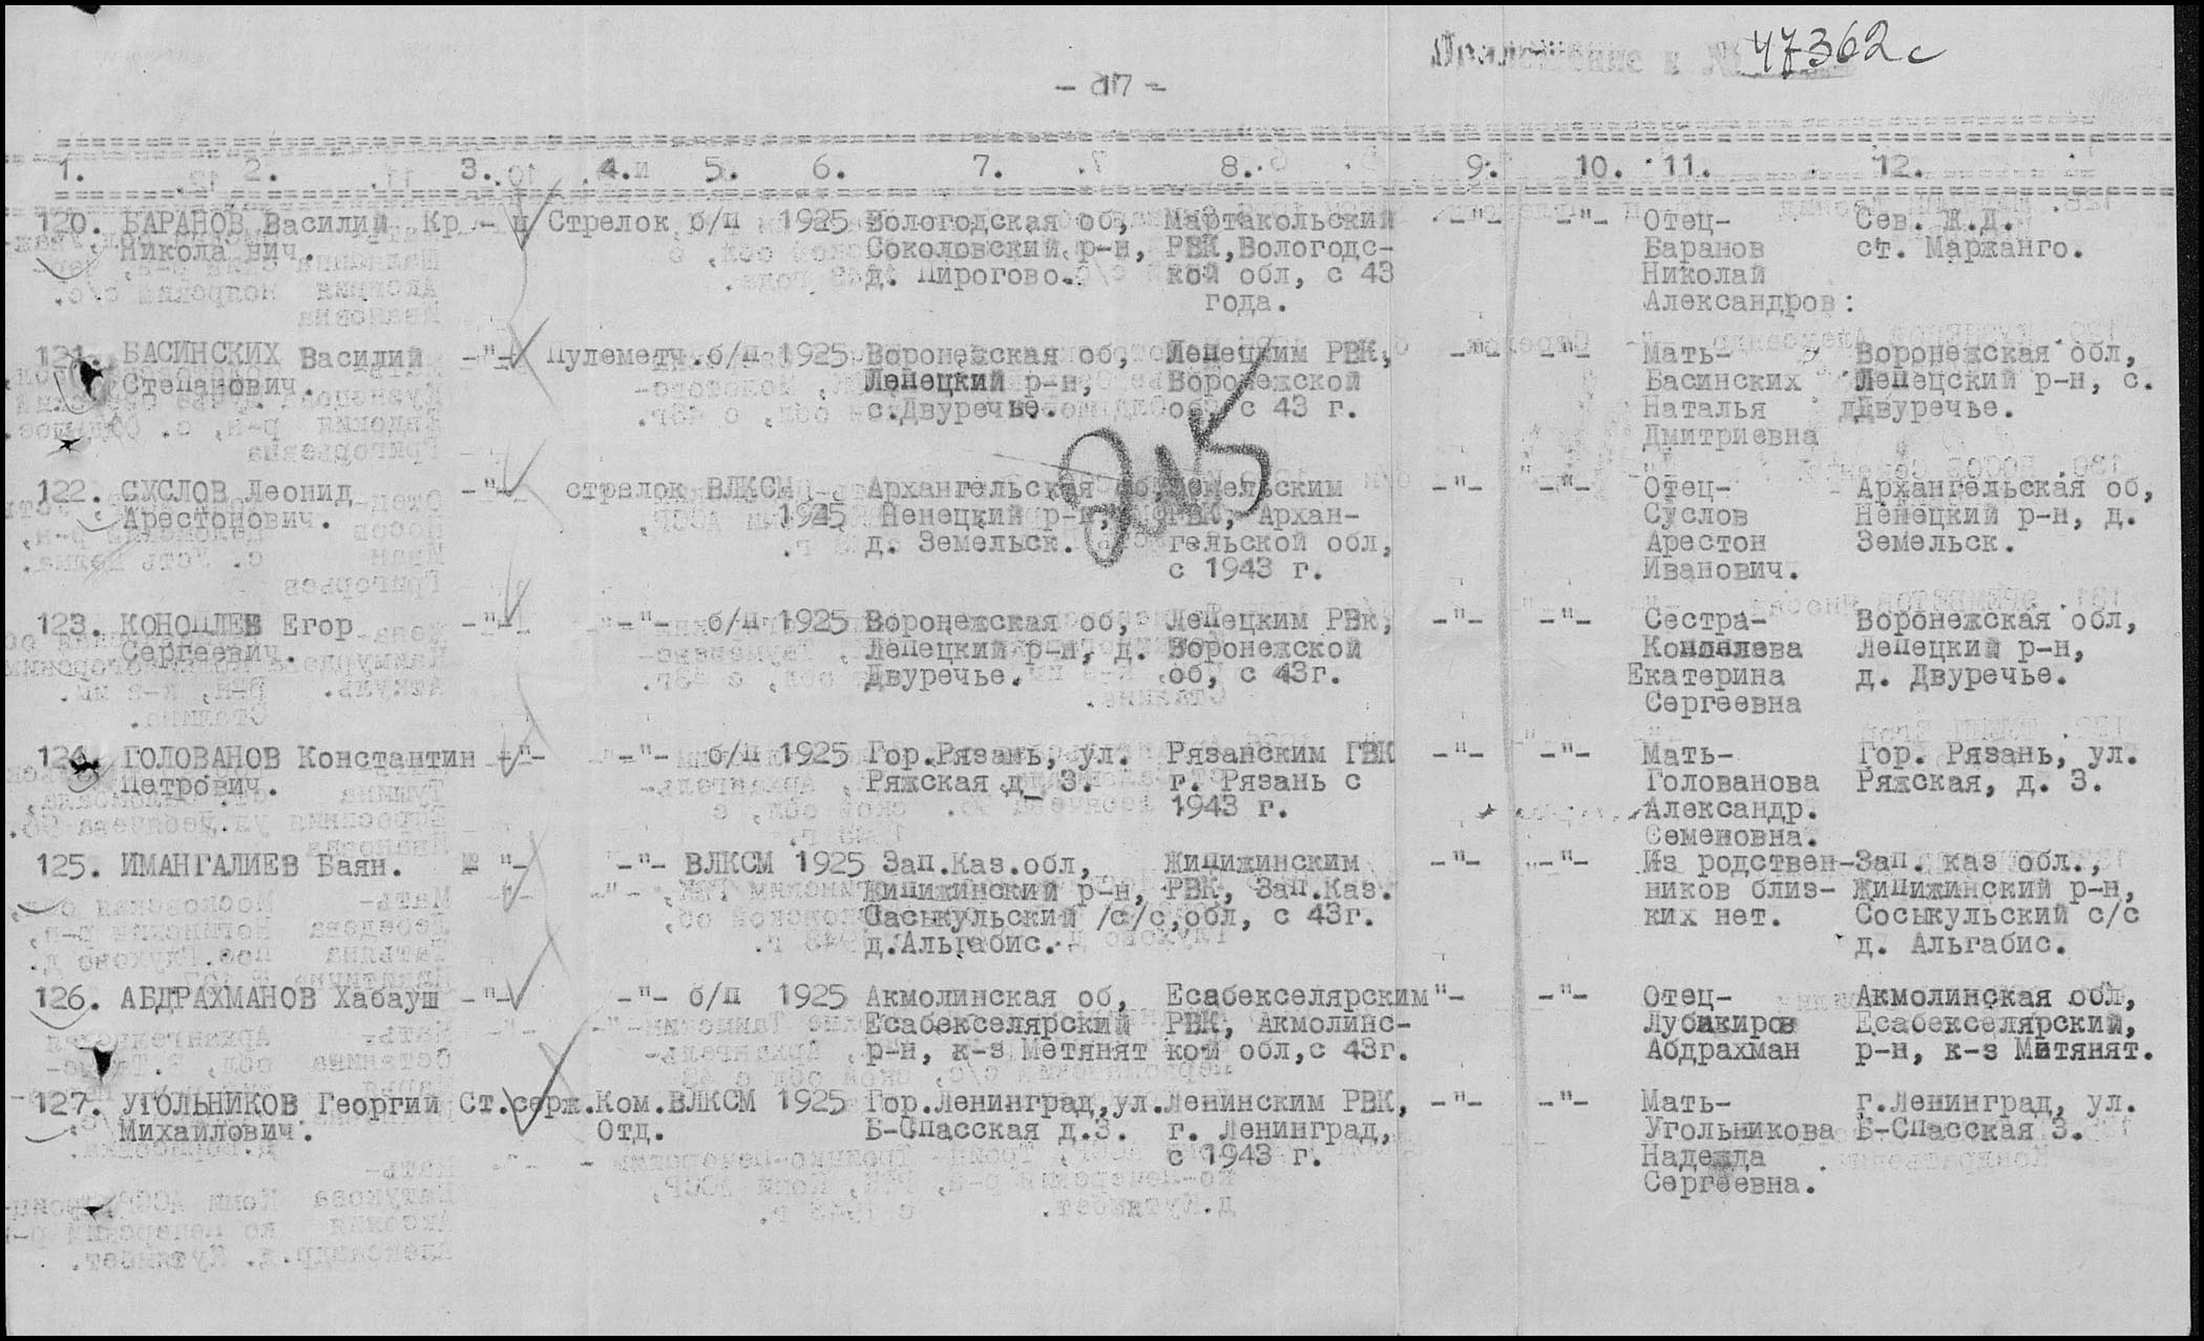 47362с
- 17 -
1. 2. 3. 4. 5. 6. 7. 8. 9. 10. 11. 12.
120. БАРАНОВ Василий Кр - ц Стрелок б/п 1925 Вологодская об, Мартакольский -"- -"- Отец- Сев. Ж.Д.
Никола вич. Соколовский р-н, РВК,Вологодс- Баранов ст. Маржанго.
д. Пирогово. кой обл, с 43 Николай
года. Александров:
121. БАСИНСКИХ Василий -"- Пулеметч. б/п 1925 Воронежская об, Лепецким РВК, -"- -"- Мать- Воронежская обл,
Степанович. Лепецкий р-н, Воронежской Басинских Лепецский р-н, с.
с.Двуречье. об, с 43 г. Наталья Двуречье.
Дмитриевна
205
122. СУСЛОВ Леонид -"- стрелок ВЛКСМ Архангельская -"- -"- Отец- Архангельская об,
Арестонович. 1925 Ненецкий р-н, РВК, Архан- Суслов Ненецкий р-н, д.
д. Земельск. гельской обл, Арестон Земельск.
с 1943 г. Иванович.
123. КОНОПЛЕВ Егор -"- -"- б/п 1925 Воронежская об, Лепецким РВк, -"- -"- Сестра- Воронежская обл,
Сергеевич. Лепецкий р-н, д. Воронежской Коноплева Лепецкий р-н,
Двуречье. об, с 43г. Екатерина д. Двуречье.
Сергеевна
124. ГОЛОВАНОВ Константин -"- -"- б/п 1925 Гор.Рязань, ул. Рязанским ГВК -"- -"- Мать- Гор. Рязань, ул.
Петрович. Ряжская д_ 3. г. Рязань с Голованова Ряжская, д. 3.
1943 г. Александр.
Семеновна.
125. ИМАНГАЛИЕВ Баян. "- -"- ВЛКСМ 1925 Зап.Каз.обл, Жипижинским -"- -"- Из родствен- Зап. каз обл.,
Жипижинский р-н, РВК, Зап.Каз. ников близ- Жипижинский р-н,
Саськульский /с/с, обл, с 43г. ких нет. Соськульский с/с
д.Альгабис. д. Альгабис.
126. АБДРАХМАНОВ Хабауш -"- -"- б/п 1925 Акмолинская об, Есабекселярским "- -"- Отец- Акмолинская обл,
Есабекселярский РВК, Акмолинс- Лубакиров Есабекселярский,
р-н, к-з Метянят кой обл,с 43г. Абдрахман р-н, к-з Метянят.
127. УГОЛЬНИКОВ Георгий Ст.серж. Ком. ВЛКСМ 1925 Гор.Ленинград,ул. Ленинским РВК, -"- -"- Мать- г.Ленинград, ул.
Михайлович. Отд. Б-Спасская д.3. г. Ленинград, Угольникова Б-Спасская 3.
с 1943 г. Надежда
Сергеевна.